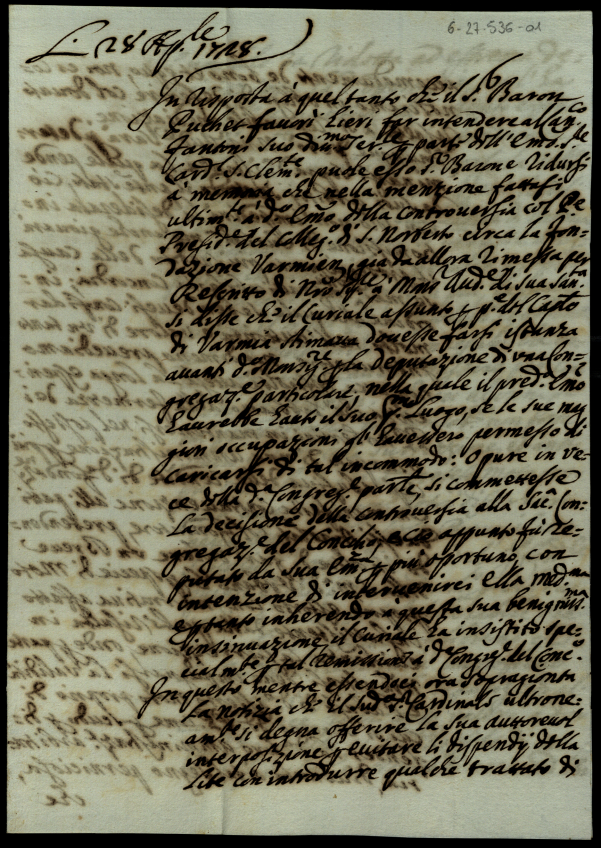 6-27-536-01
L. 28 Ap.le 1728.
In risposta à quel tanto che il S.r Baron
Puchet favorì hieri far intendere all'
Fantoni suo Ser.e p parte dell'Em.o S.r
Card.l S. Clem.te puole esso S.r Barone ridursi
à memoria che nella menzione fattasi
ultim.te à d.o Em̃o della controversia col P.e
Presid.e del Colleg.o di S. Norberto circa la fon=
dazione Varmien. già da allora rimessa per
Rescritto di Nr̃o Sig.re à Mons.r Aud.e di Sua San.tà
si disse che il Curiale assunto p p.e del Cap̃lo
di Varmia stimava dovesse farsi istanza
avanti d.o Mons.re p la deputazione di una Con=
gregaz.e particolare, nella quale il pred.o Em̃o
haurebbe hauto il suo P.mo luogo, se le sue mag
giori occupazioni gl'havessero permesso di
caricarsi di tal incommodo: Opure in ve=
ce della d.a Congreg.e part.e, si commettesse
la decisione della controversia alla Sac̃. Con=
gregaz.e del Concilio, e ciò appunto fù re=
putato da Sua Em.za p più oportuno, con
intenzione di intervenirci ella med.ma
e p tanto inherendo a questa sua benigniss.ma
insinuazione il Curiale ha insistito spe=
cialm.te p tal remissione à d.a Congreg.e del Conc.o
In questo mentre essendoci ora sopragionta
la notizia che il sud.o S.r Cardinale ultrone=
am.te si degna offerire la sua auttorevol
interposizione p evitare li dispendij della
lite con introdurre qualche trattato di